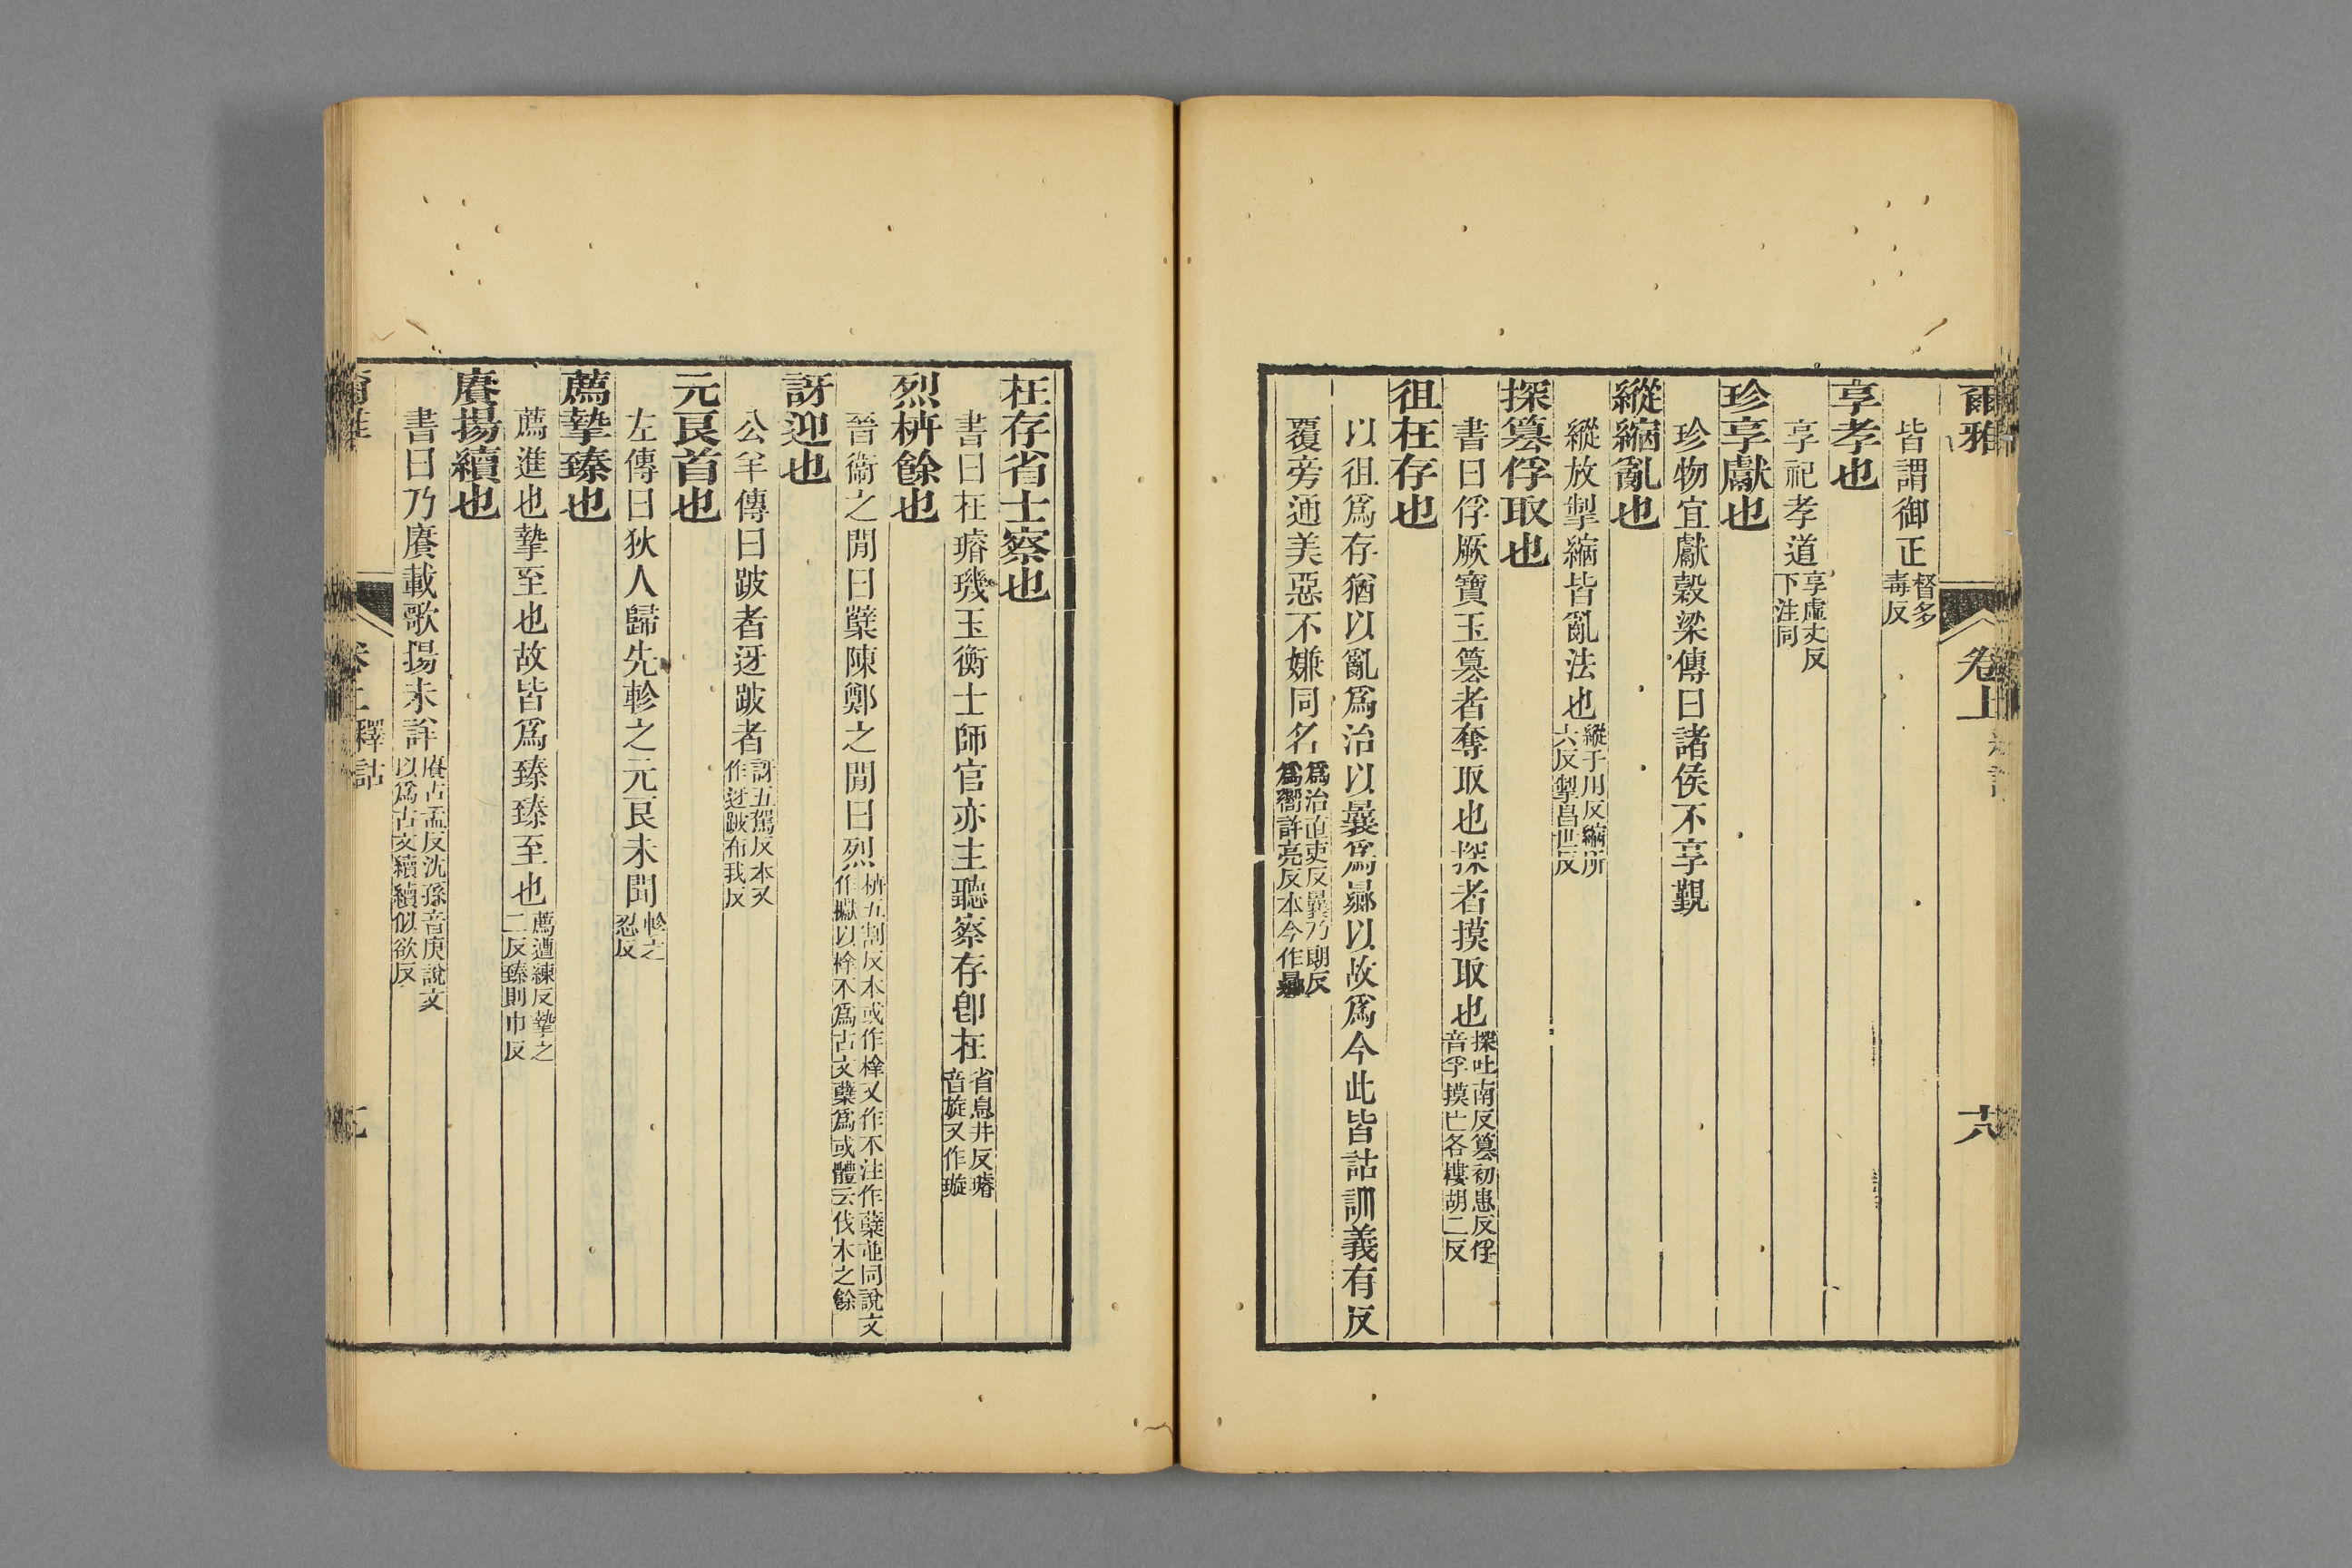 爾雅 卷上 十八
皆謂御正督多毒反
享孝也
享祀孝道享虛丈反下注同
珍享獻也
珍物宜獻穀梁傳曰諸侯不享覲
縱縮亂也
縱放掣縮皆亂法也縱子用反縮所六反掣昌世反
探篡俘取也
書曰俘厥寶玉篡者奪取也探者摸取也探吐南反篡初患反俘音孚摸亡各樓胡二反
徂在存也
以徂爲存猶以亂爲治以曩爲曏以故爲今此皆詁訓義有反
覆旁通美惡不嫌同名爲治直吏反曩乃朗反爲嚮許亮反本今作曏
在存省士察也
書曰在璿璣玉衡士師官亦主聽察存卽在省息井反璿音旋又作璇
烈枿餘也
晉衞之閒曰櫱陳鄭之閒曰烈枿五割反本或作㭞又作不注作蘖竝同說文作櫱以㭞不爲古文蘖爲或體云伐木之餘
訝迎也
公羊傳曰跛者迓跛者訝五駕反本又作迓跛布我反
元良首也
左傳曰狄人歸先軫之元良未聞軫之忍反
薦摯臻也
薦進也摯至也故皆爲臻臻至也薦遭練反摯之二反臻則巾反
賡揚續也
書曰乃賡載歌揚未詳賡古孟反沈孫音庚說文以爲古文續續似欲反
爾雅 卷上 釋詁